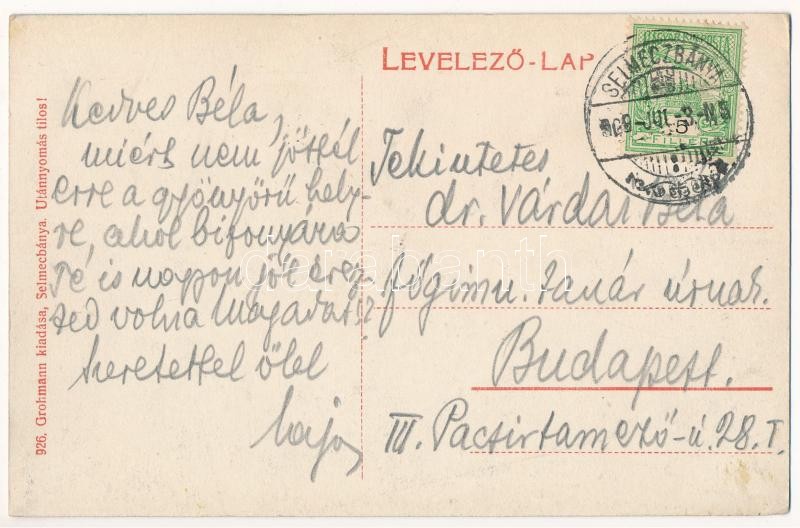 LEVELEZŐ-LAP
SELMECZBÁNYA
5
FILLÉR
Kedves Béla,
miért nem jöttél
erre a gyönyörű hely-
re, ahol bizonyára
Te is nagyon jól érez-
ted volna Magadat!?
Szeretettel ölel
Lajos
Tekintetes
dr. Várdai Béla
főgimn. tanár úrnak.
Budapest.
III. Pacsirtamező-ú. 28. I.
926. Grohmann kiadása, Selmecbánya. Utánnyomás tilos!
darabanth